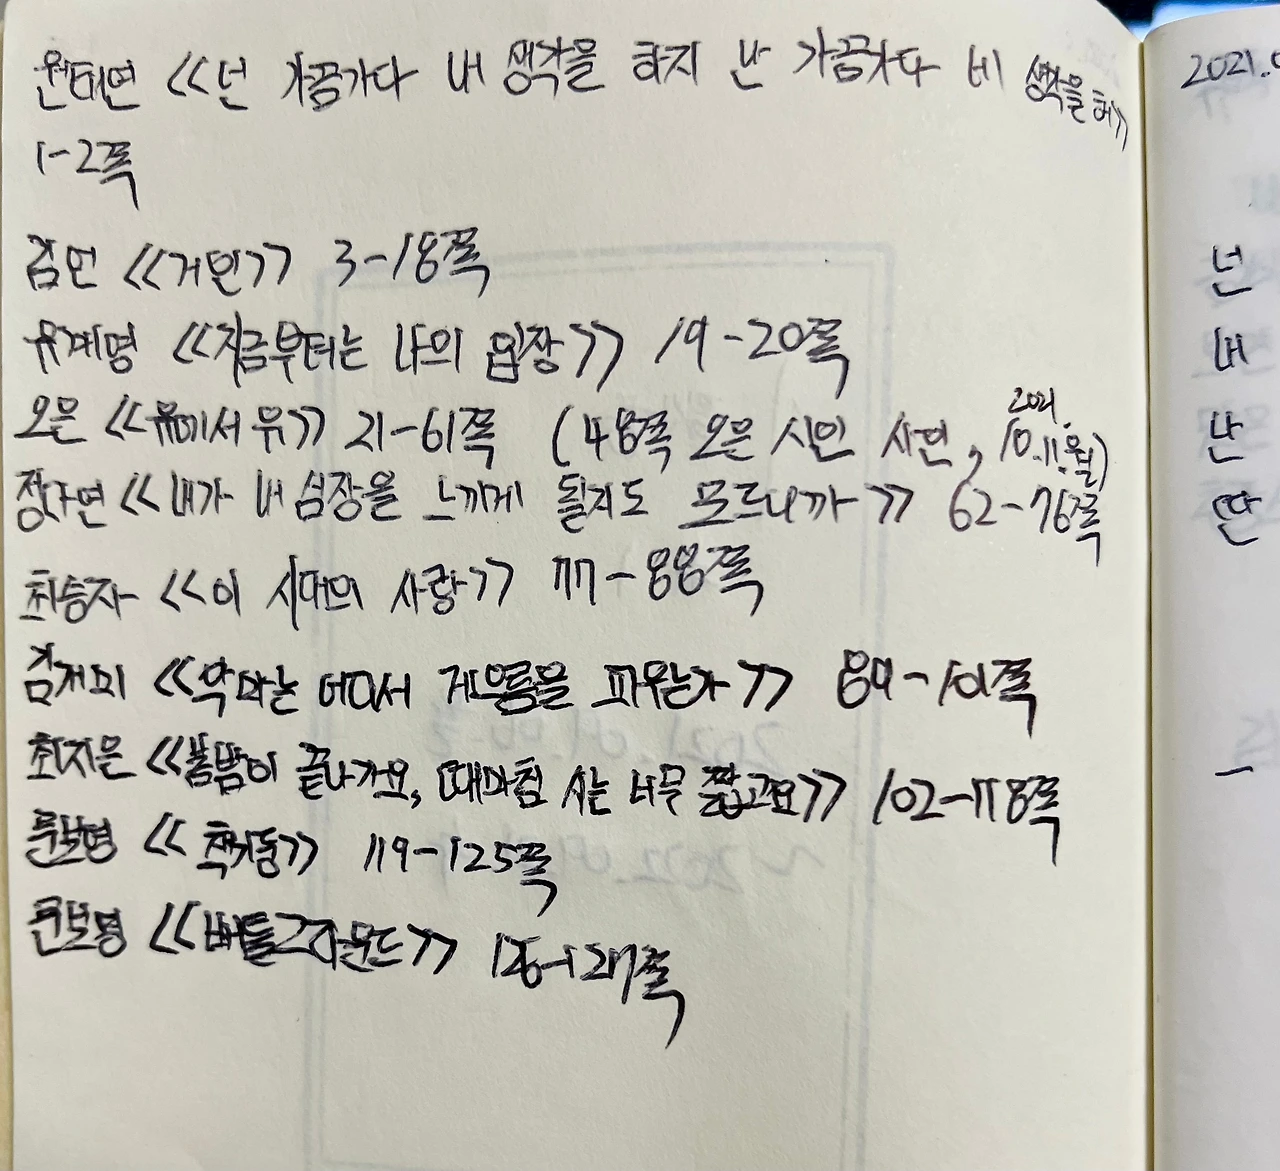 원태연 <<넌 가끔가다 내 생각을 하지 난 가끔가다 네 생각을 해>>
1-2쪽
김언 <<거인>> 3-18쪽
유계영 <<지금부터는 나의 입장>> 19-20쪽
오은 <<유에서 유>> 21-61쪽 (48쪽 오은 시인 사인, 2021. 10.11.월)
정다연 <<내가 내 심장을 느끼게 될지도 모르니까>> 62-76쪽
최승자 <<이 시대의 사랑>> 77-88쪽
김개미 <<악마는 어디서 게으름을 피우는가>> 89-101쪽
최지은 <<봄밤이 끝나가요, 때마침 시는 너무 짧고요>> 102-118쪽
문보영 <<책기둥>> 119-125쪽
문보영 <<배틀그라운드>> 126-127쪽
2021.
넌
내
난
딴